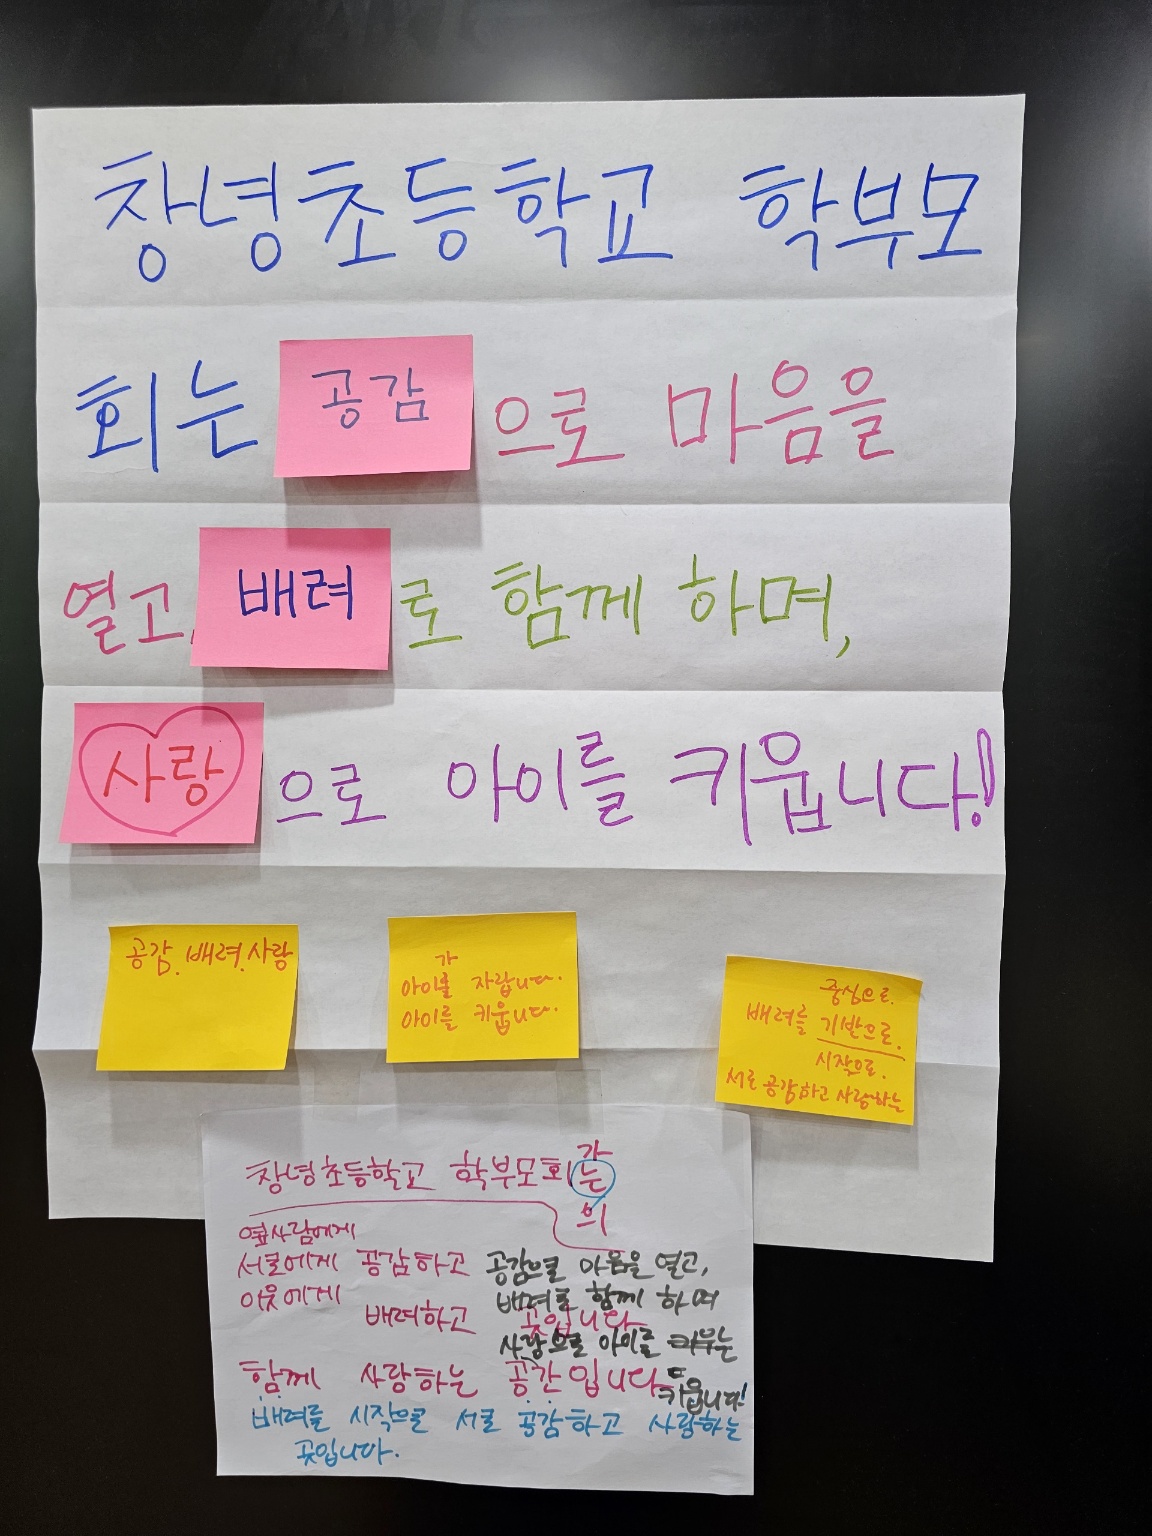 창녕초등학교 학부모
회는 공감으로 마음을
열고, 배려로 함께 하며,
사랑으로 아이를 키웁니다!
공감. 배려. 사랑
가
아이를 자랍니다.
아이를 키웁니다.
중심으로.
배려를 기반으로.
시작으로.
서로 공감하고 사랑하는
가
창녕초등학교 학부모회는
의
옆사람에게
서로에게 공감하고 공감으로 마음을 열고,
이웃에게 배려로 함께 하며
배려하고 곳입니다
사랑으로 아이를 키우는
함께 사랑하는 공간입니다
키웁니다!
배려를 시작으로 서로 공감하고 사랑하는
곳입니다.